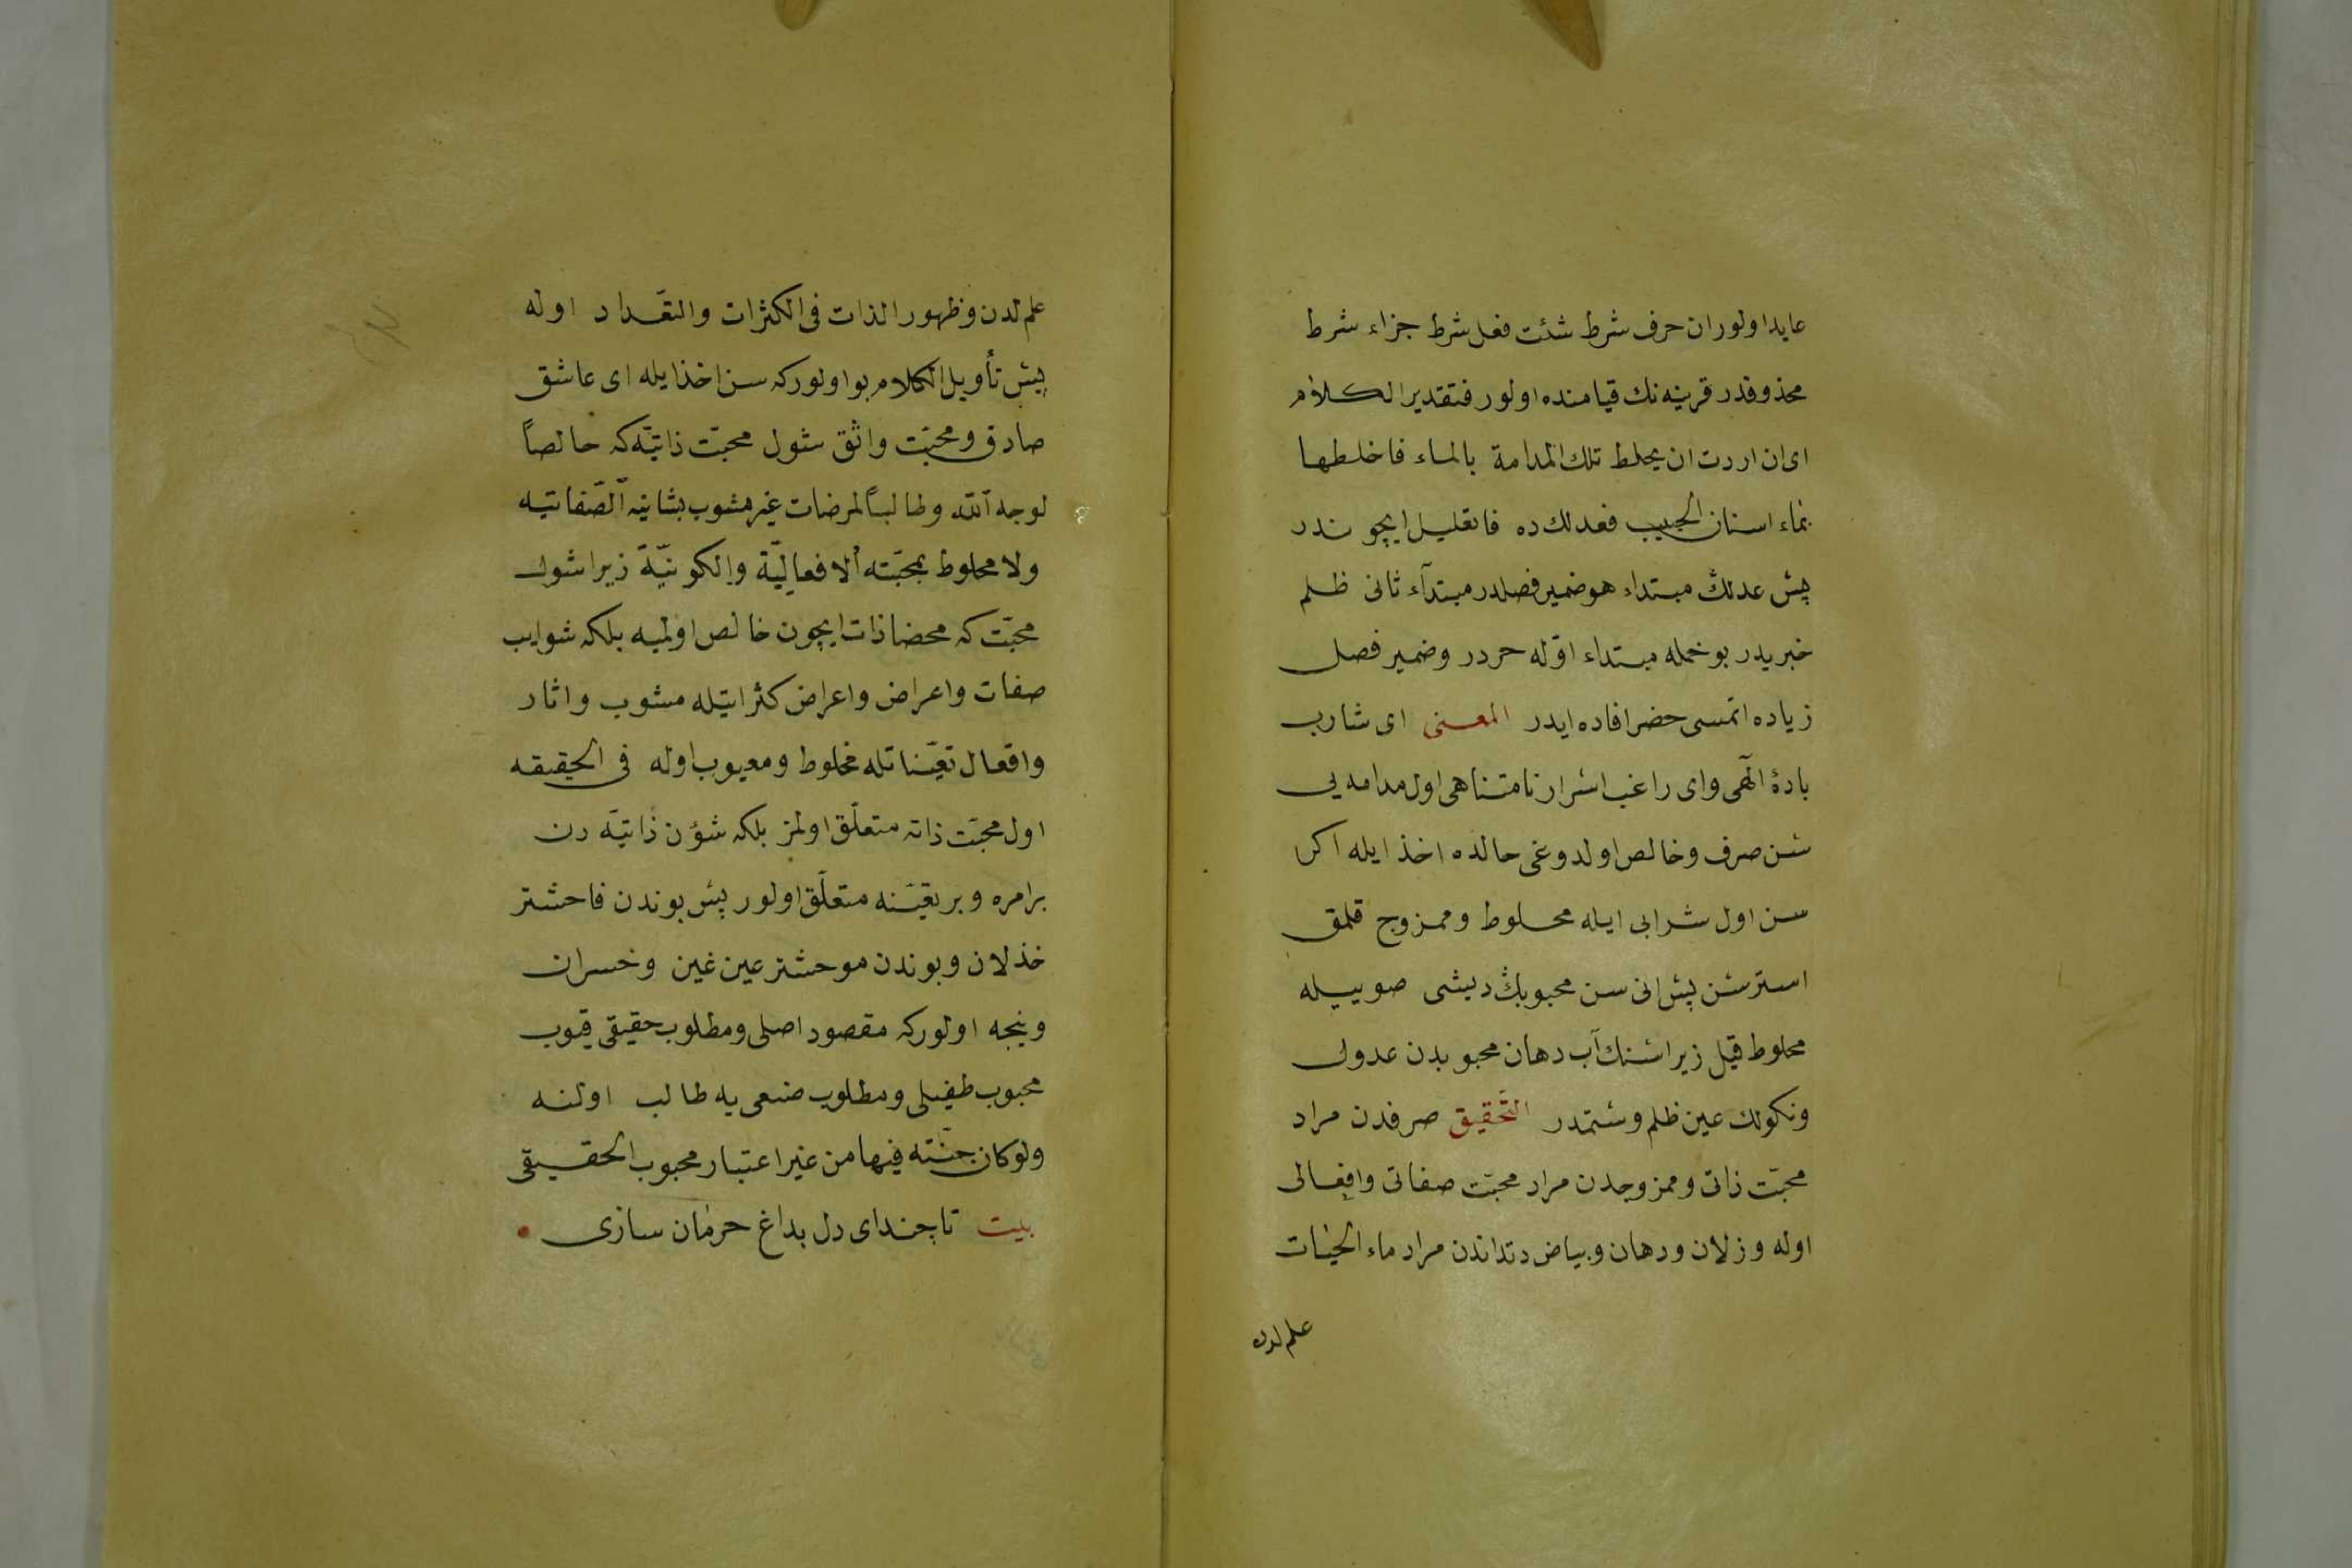 عايد اولور ان حرف شرط شئت فعل شرط جزاء شرط
محذوفدر قرينه نك قيامنده اولور فتقدير الكلام
اى ان اردت ان يخلط تلك المدامة بالماء فاخلطها
بماء اسنان الحبيب فعدلك ده فا تعليل ايچوندر
پس عدلك مبتداء هو ضمير فصلدر مبتدآء ثانى ظلم
خبريدر بو جمله مبتداء اوّله خبردر وضمير فصل
زياده اتمسى حصر افاده ايدر المعنى اى شارب
بادهٔ الٓهى واى راغب اسرار نامتناهى اول مدامه يى
سن صرف وخالص اولدوغى حالده اخذ ايله اكر
سن اول شرابى ايله مخلوط وممزوج قلمق
استرسن پس انى سن محبوبڭ ديشى صوييله
مخلوط قيل زيرا سنك آب دهان محبوبدن عدول
ونكولك عين ظلم وستمدر التّحقيق صرفدن مراد
محبّت ذاتى وممزوجدن مراد محبّت صفاتى وافعالى
اوله وزلان ودهان وبياض دنداندن مراد ماء الحيات
علم لدن
علم لدن وظهور الذات فى الكثرات والتعّداد اوله
پس تأويل الكلام بو اولور كه سن اخذ ايله اى عاشق
صادق ومحبّت واثق شول محبّت ذاتيّه كه خالصاً
لوجه الله وطالباً لمرضات غير مشوب بشانيه الصّفاتيه
ولا مخلوط بمحبّته الافعاليّة والكونيّة زيرا شول
محبّت كه محضا ذات ايچون خالص اولميه بلكه شوايب
صفات واعراض واعراض كثراتيله مشوب واثار
وافعال تعيّناتله مخلوط ومعيوب اوله فى الحقيقه
اول محبّت ذاته متعلّق اولمز بلكه شؤن ذاتيّه دن
بر امره وبر تعيّنه متعلّق اولور پس بوندن فاحشتر
خذلان وبوندن موحشتر عين غين وخسران
ونيجه اولور كه مقصود اصلى ومطلوب حقيقى قيوب
محبوب طفيلى ومطلوب ضمعى يه طالب اولنه
ولو كان جنّته فيها من غير اعتبار محبوب الحقيقى
بيت تا چند اى دل بداغ حرمان سازى